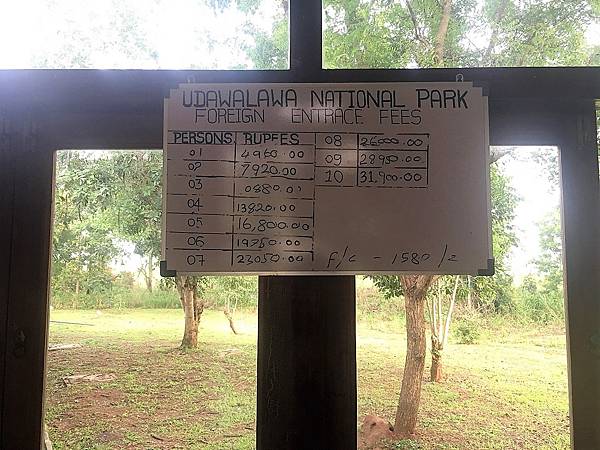 UDAWALAWA NATIONAL PARK
FOREIGN ENTRACE FEES
PERSONS RUPEES
01 4960.00
02 7920.00
03 0880.01
04 13820.00
05 16,800.00
06 19750.00
07 23050.00
08 26000.00
09 28950.00
10 31,900.00
f/c - 1580 /=